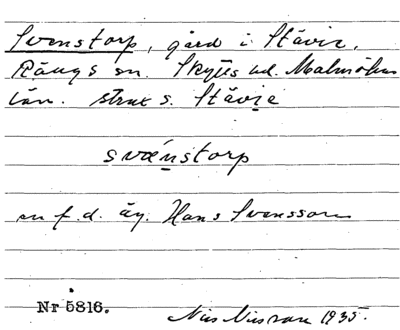 Svenstorp, gård i Stävie,
Rängs sn. Skytts hd. Malmöhus
län. strax s. Stävie
svǽnstorp
en f.d. äg. Hans Svensson
Nr 5816. Nils Nilsson 1935.